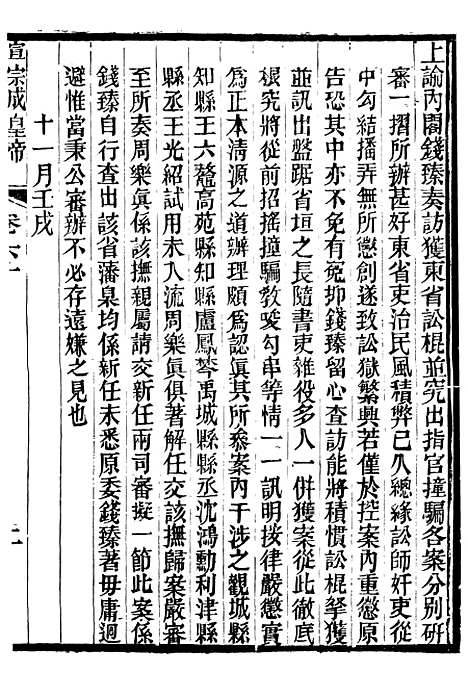 上諭內閣錢臻奏訪獲東省訟棍並究出指官撞騙各案分別研
審一摺所辦甚好東省吏治民風積弊已久總緣訟師奸吏從
中勾結播弄無所懲創遂致訟獄繁興若僅於控案內重懲原
告恐其中亦不免有冤抑錢臻留心查訪能將積慣訟棍拏獲
並訊出盤踞省垣之長隨書吏雜役多人一併獲案從此徹底
根究將招搖撞騙教唆勾串等情一一訊明按律嚴懲實
為正本清源之道辦理頗為認真其所叅案內干涉之觀城縣
知縣王六鼇高苑縣知縣盧鳳琴禹城縣縣丞沈鴻勳利津縣
縣丞王光紹試用未入流周樂眞俱著解任交該撫歸案嚴審
至所奏周樂眞係該撫親屬請交新任兩司審擬一節此案係
錢臻自行查出該省藩臬均係新任未悉原委錢臻著毋庸迴
避惟當秉公審辦不必存遠嫌之見也
十一月壬戌
宣宗成皇帝
卷六
二